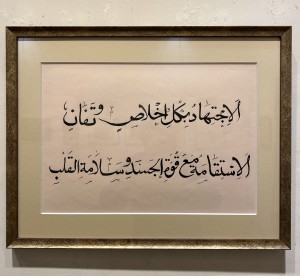 الاِجْتِهَادُ بِكُلِّ اِخْلَاصٍ وَتَفَانٍ
الاِسْتِقَامَةُ مَعَ قُوَّةِ الجَسَدِ وَسَلَامَةِ القَلْبِ